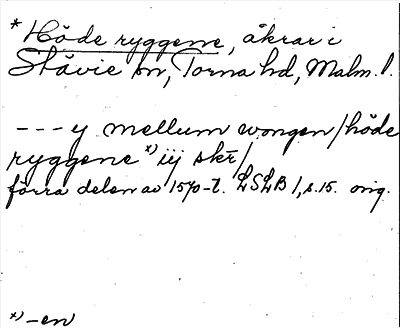 * Höde ryggene, åkrar i
Stävie sn, Torna hd, Malm. l.
--- y mellum wongen/höde
ryggene *) iij skr/
förra delen av 1570-t. LSLB 1, s. 15. orig.
*) -en